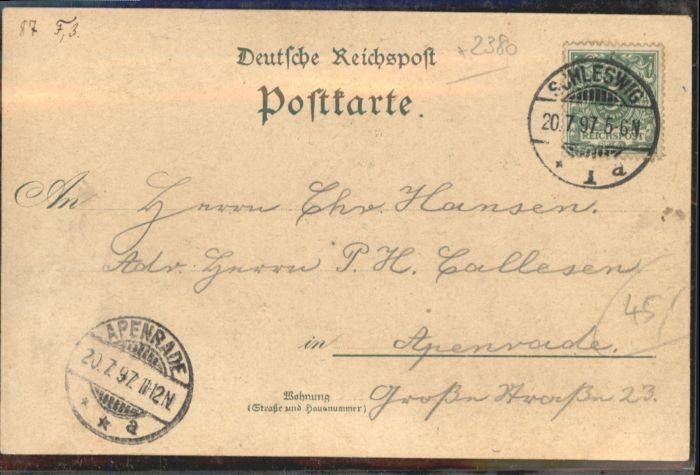 87 F,3.
+2380
Deutsche Reichspost
Postkarte.
SCHLESWIG
20.7.97.5-6N.
* 1 a
REICHSPOST
An Herrn Chr. Hansen.
Adr. Herrn P. H. Callesen
45
in Apenrade.
APENRADE
20.7.97.11-12N.
* * a
Wohnung
(Straße und Hausnummer)
Große Straße 23.